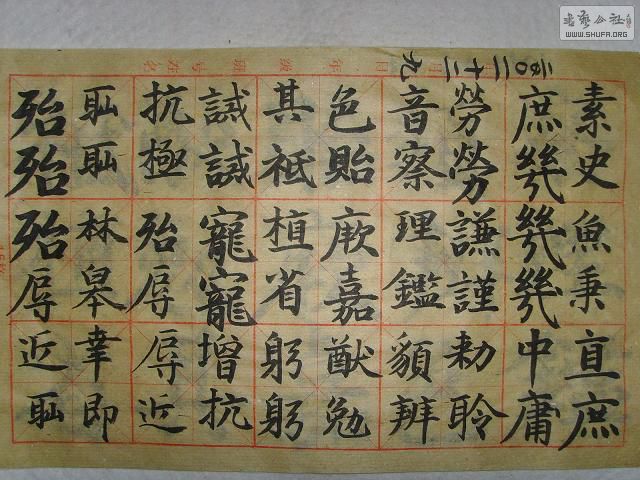 书艺公社
WWW.SHUFA.ORG
素史魚秉直庶
庶幾幾幾中庸
勞勞謙謹勅聆
音察理鑑貌辨
色貽厥嘉猷勉
其祗植省躬躬
誡誡寵寵增抗
抗極殆辱辱近
耻耻林皋幸即
殆殆殆辱近耻